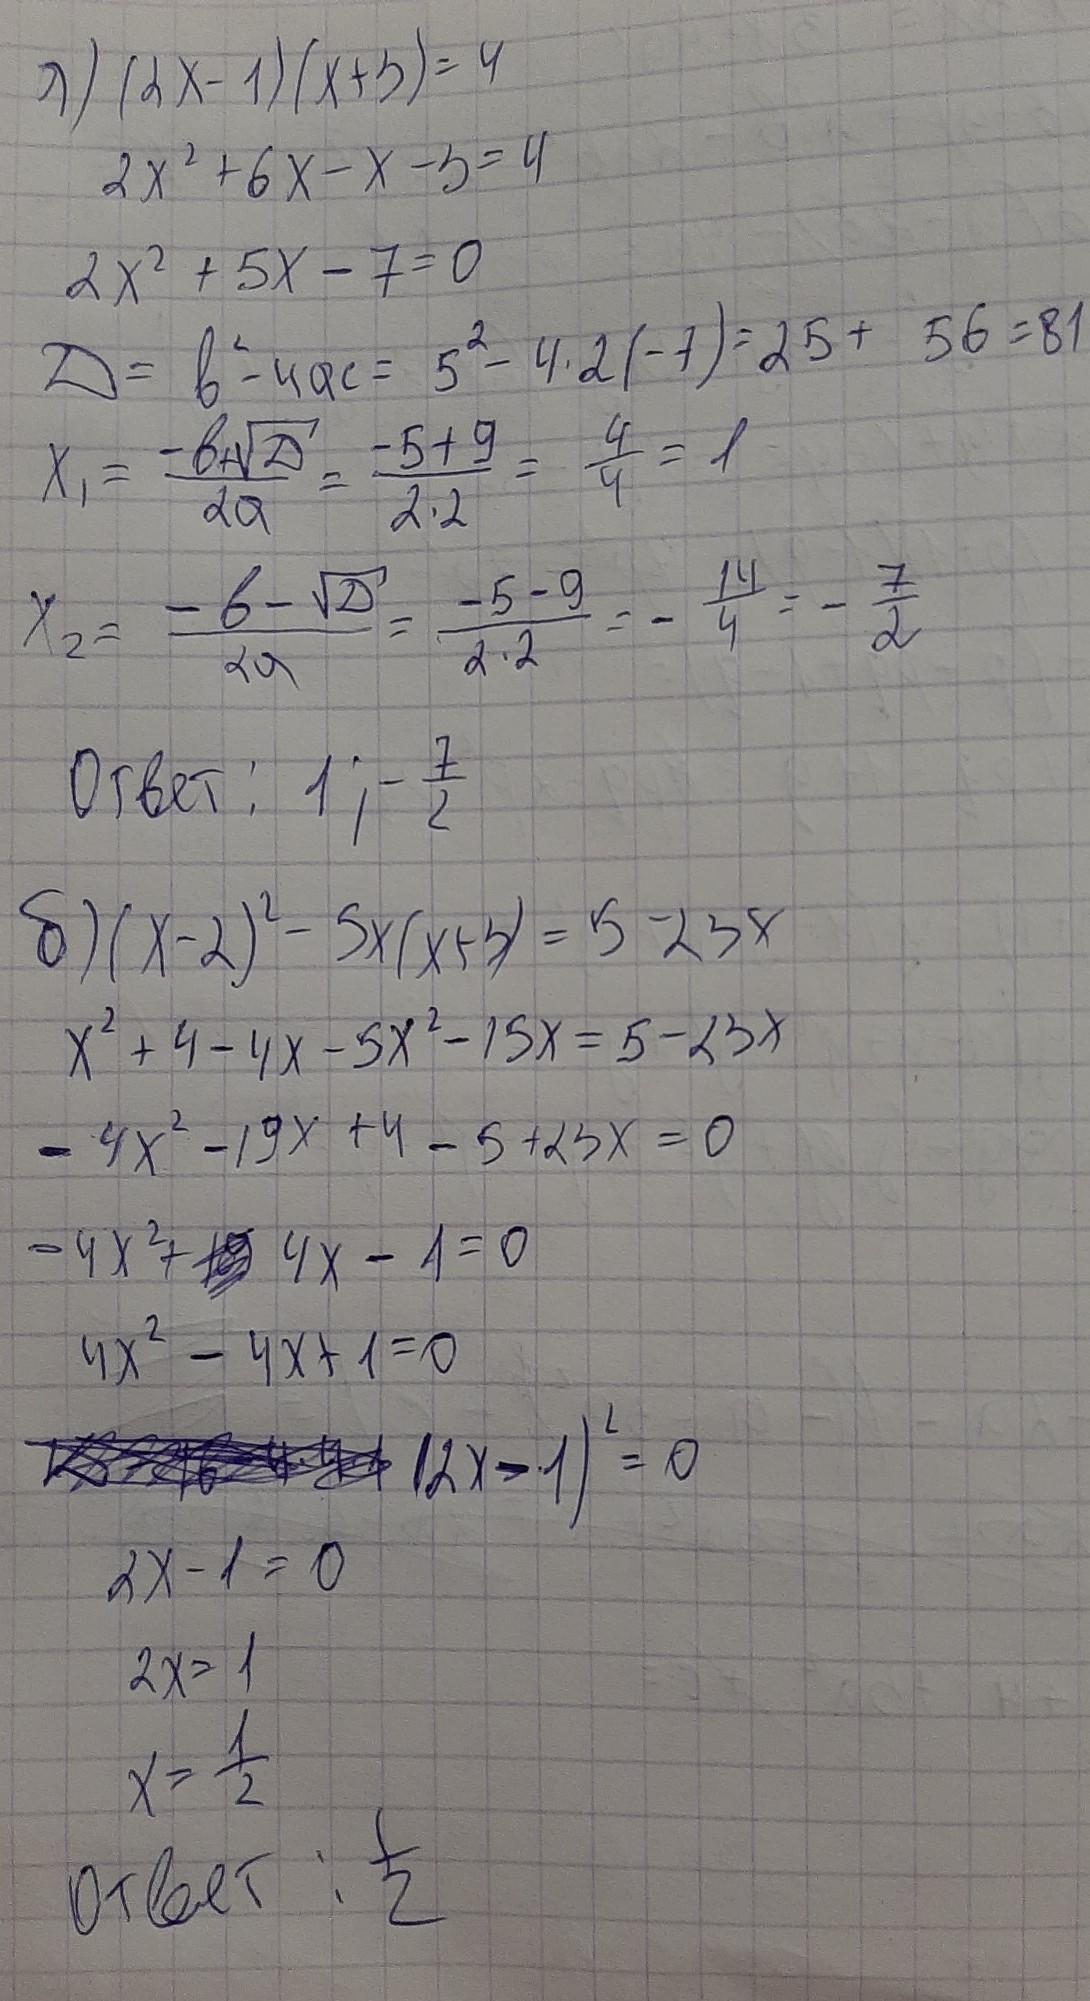 а) (2x-1)(x+3)=4
2x²+6x-x-3=4
2x²+5x-7=0
D= b²-4ac= 5²-4·2(-7)=25+ 56=81
x₁= (-b+√D)/2a = (-5+9)/2·2 = 4/4 = 1
x₂= (-b-√D)/2a = (-5-9)/2·2 = - 14/4 = - 7/2
Ответ: 1; - 7/2
б) (x-2)²- 5x(x+3) = 5-23x
x²+4-4x-5x²-15x=5-23x
- 4x²-19x+4-5+23x=0
-4x²+ 4x-1=0
4x²-4x+1=0
(2x-1)²=0
2x-1=0
2x=1
x= 1/2
Ответ: 1/2